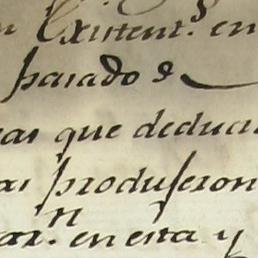 Existent.s en
parado e
as que deduc
as produseron
ar.n en esta y